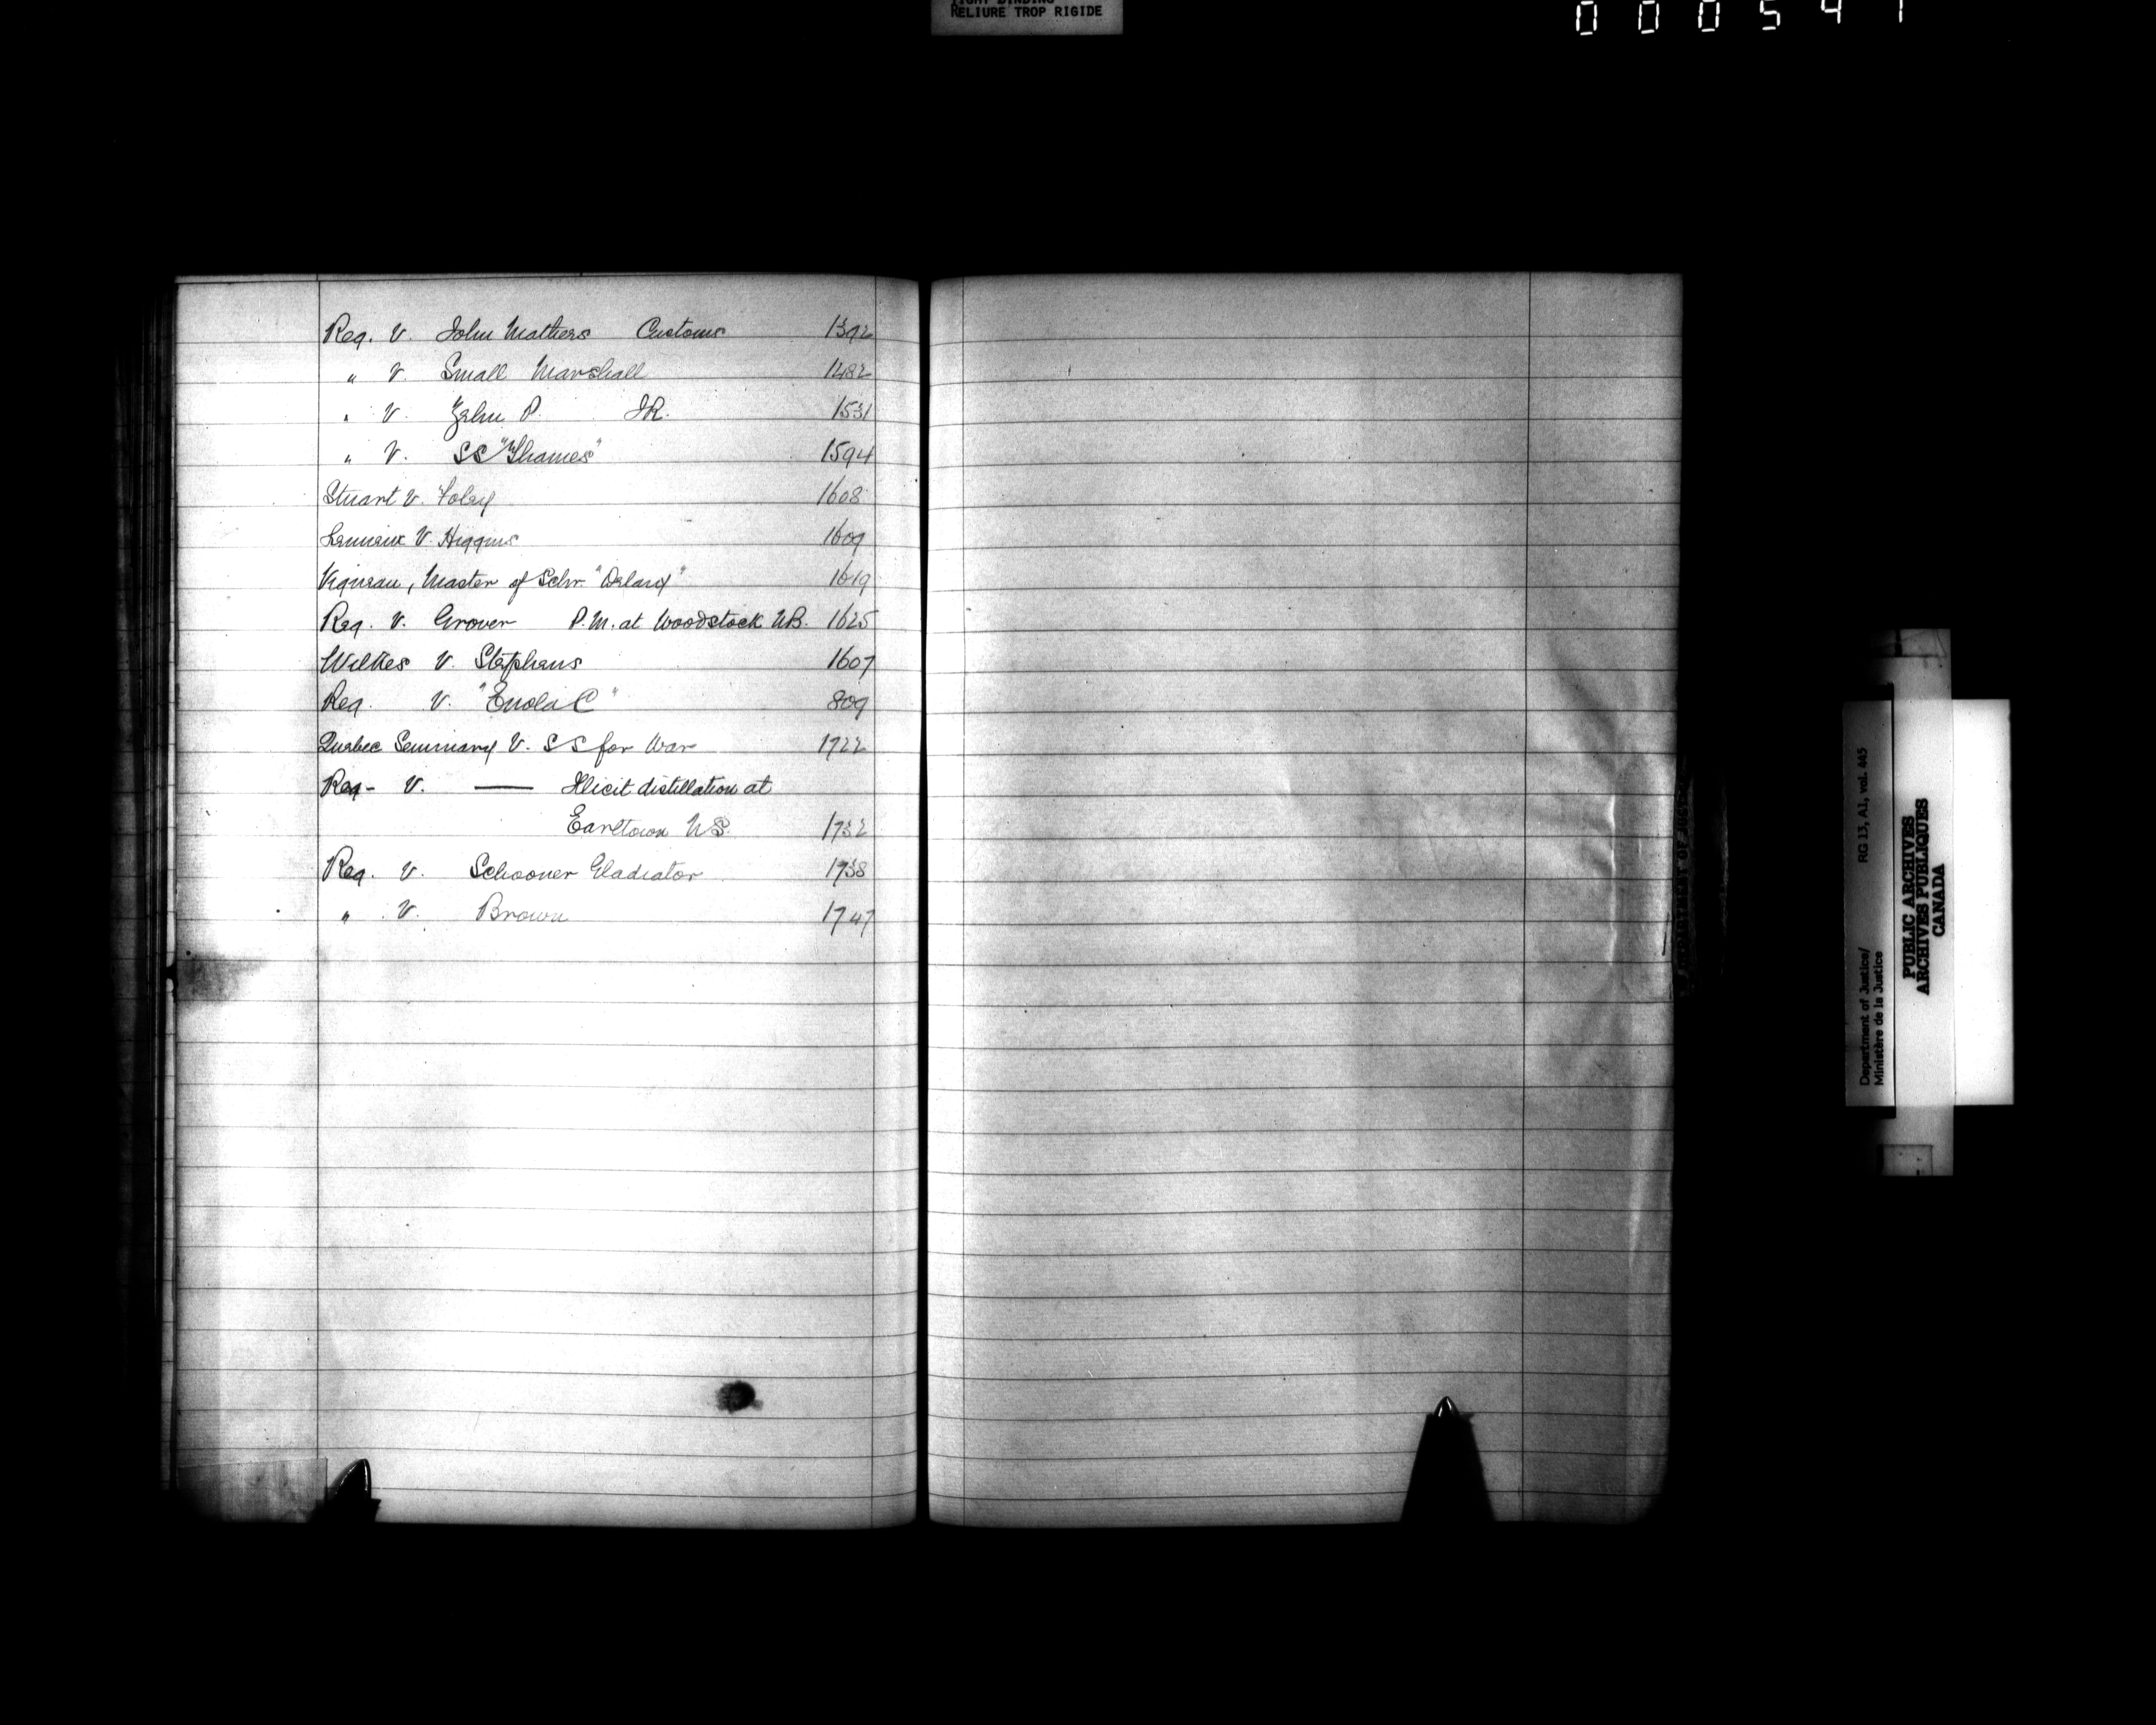 TIGHT BINDING
RELIURE TROP RIGIDE
000541
Reg. V. John Mathers Customs 1392
" V. Small Marshall 1482
" V. Zehu P. IR. 1531
" V. SS "Thames" 1594
Stuart V. Foley 1608
Lemieux V. Higgins 1609
Vigneau, Master of Schr. "Orland" 1619
Reg. V. Grover P.M. at Woodstock NB. 1625
Wilkes V. Stephens 1607
Reg. V. "Enola C" 809
Quebec Seminary V. SS for War 1722
Reg - V. — Illicit distillation at
Earltown NS. 1732
Reg. V. Schooner Gladiator 1738
" V. Brown 1747
DEPARTMENT OF JUSTICE
Department of Justice/ RG 13, A1, vol. 445
Ministère de la Justice
PUBLIC ARCHIVES
ARCHIVES PUBLIQUES
CANADA